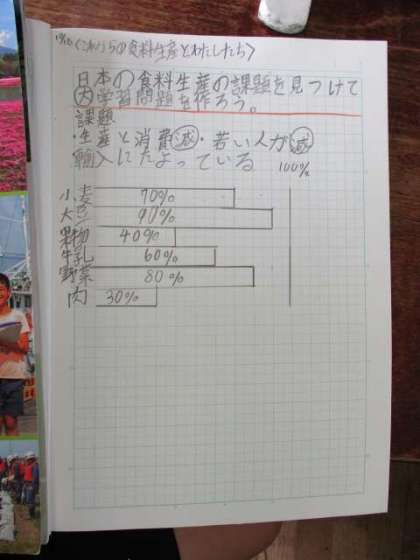 〈これからの食料生産とわたしたち〉
日本の食料生産の課題を見つけて
大学習問題を作ろう。
課題
・生産と消費減・若い人が減
輸入にたよっている
100%
小麦 70%
大豆 90%
果物 40%
牛乳 60%
野菜 80%
肉 30%